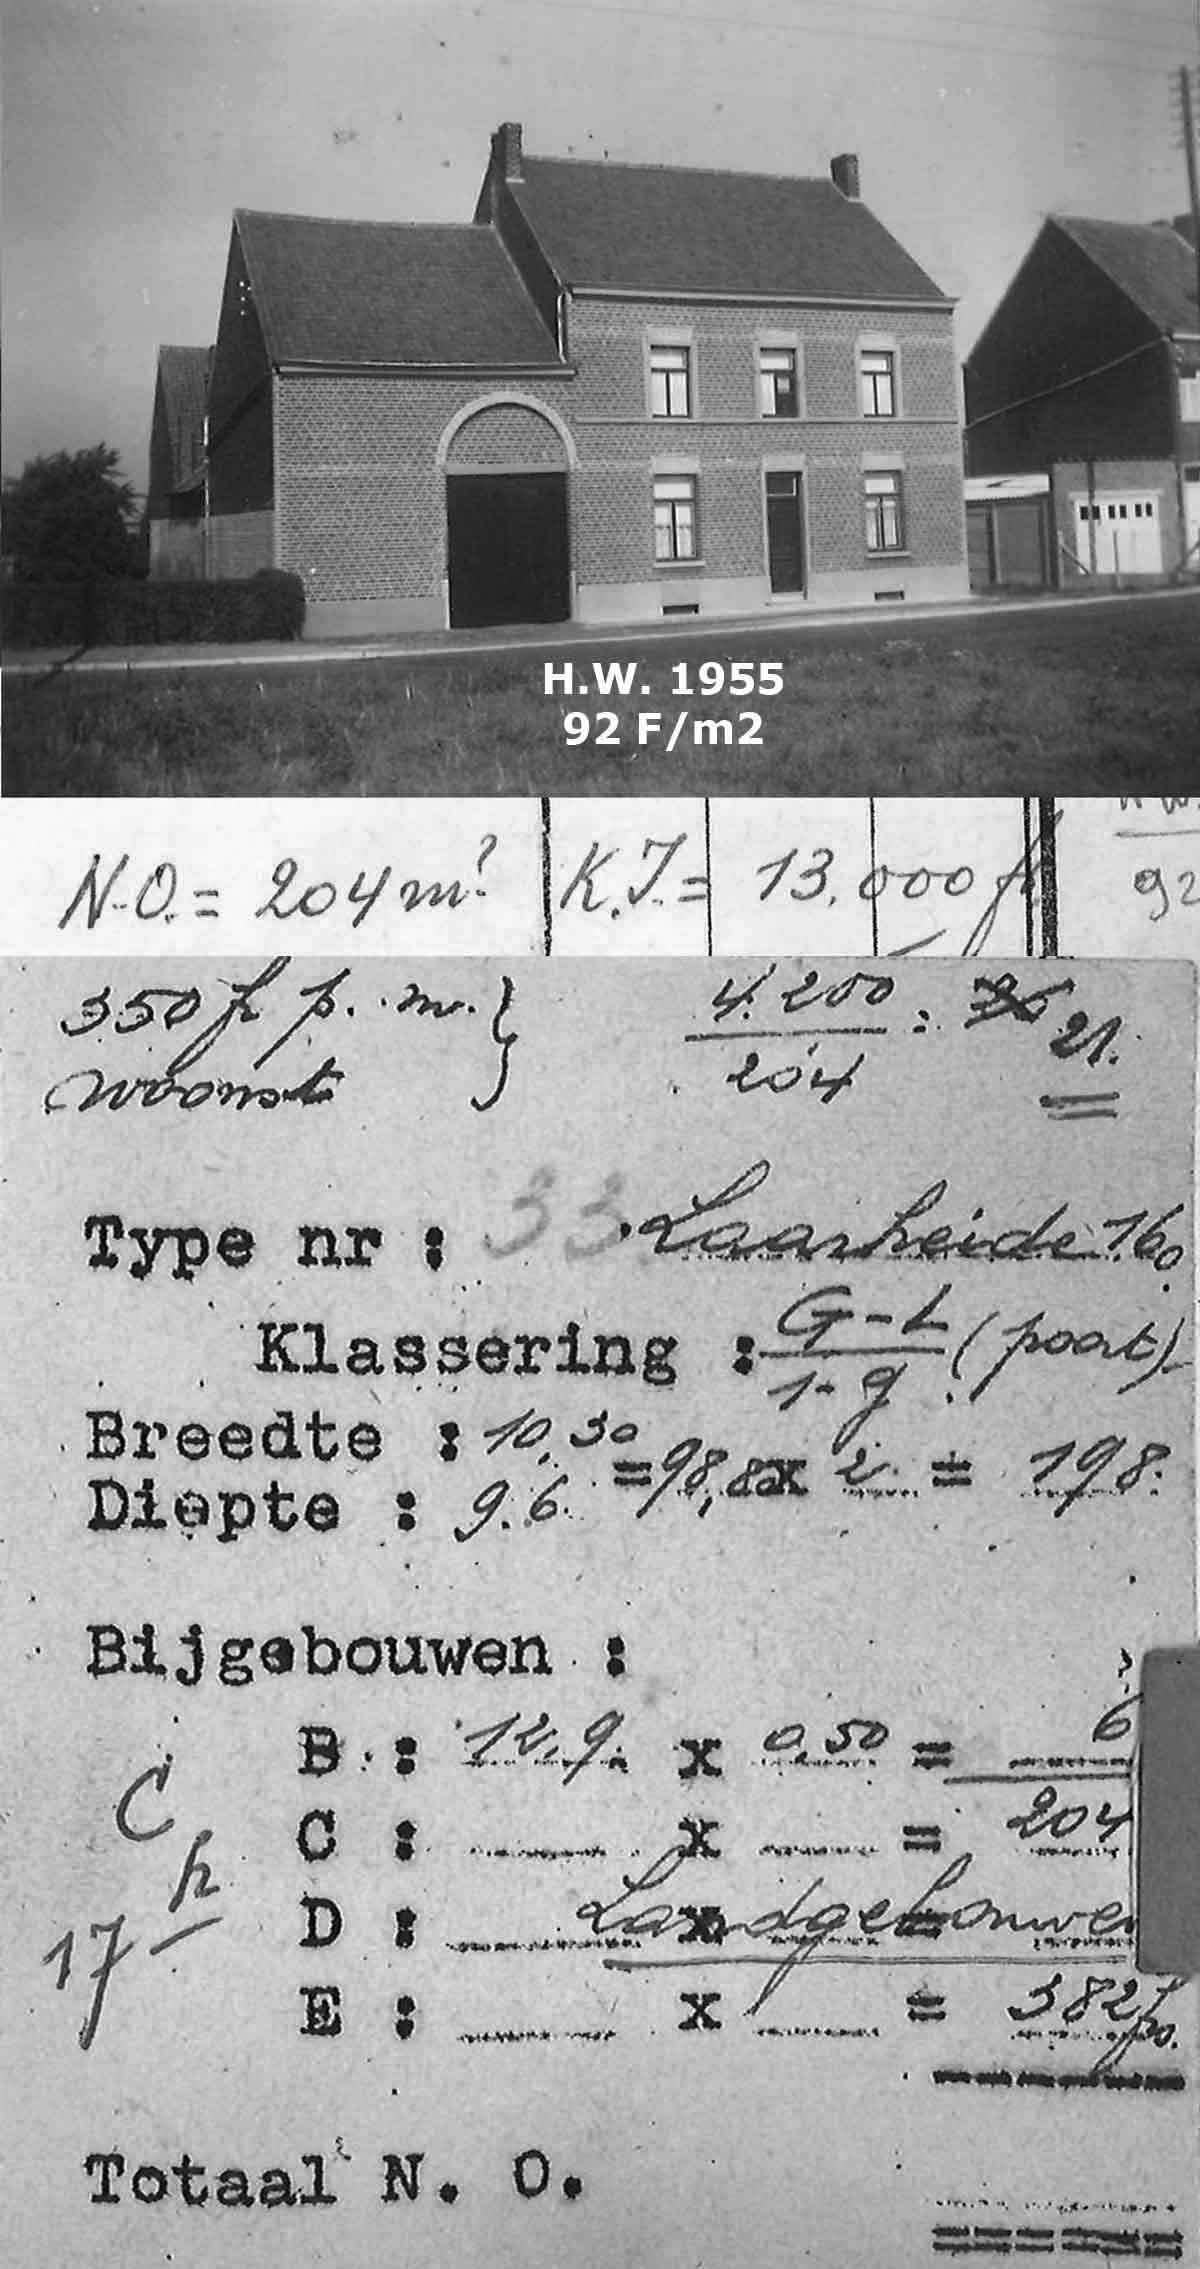 H.W. 1955
92 F/m2
N.O. = 204 m² K.I. = 13.000 fr
92
350 fr p. m. }
woonst
4.200 / 204 = 21.
Type nr : 33 Laarheide 160
Klassering : G-L / 1-g (poort)
Breedte : 10,30
= 98,8 x 2 = 198.
Diepte : 9.6
Bijgebouwen :
B : 12,9. x 0,50 = 6
C : x = 204
D : Landgebouwen x =
E : x = 382
C
17
Totaal N. O.